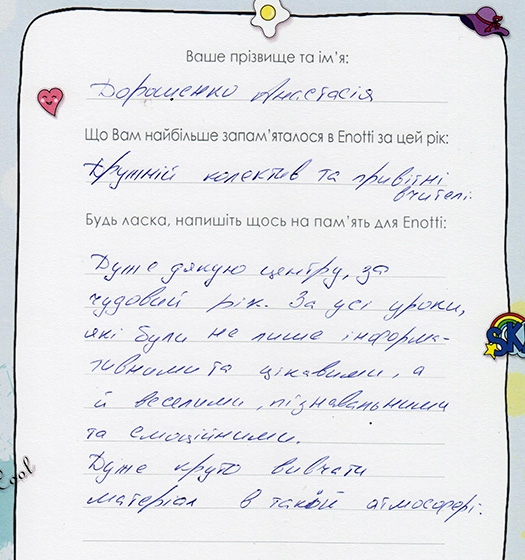 Ваше прізвище та ім’я:
Дорошенко Анастасія
Що Вам найбільше запам’яталося в Enotti за цей рік:
Дружній колектив та привітні
вчителі.
Будь ласка, напишіть щось на пам’ять для Enotti:
Дуже дякую центру, за
чудовий рік. За усі уроки,
які були не лише інформа-
тивними та цікавими, а
й веселими, пізнавальними
та емоційними.
Дуже круто вивчати
матеріал в такій атмосфері.
SK
Cool